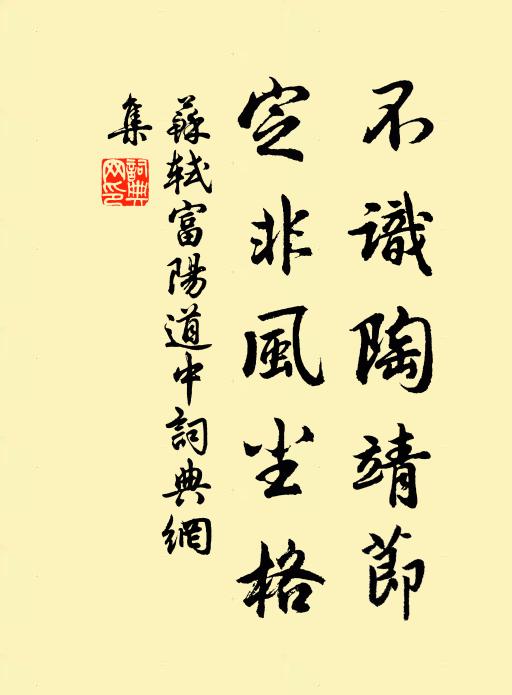 不識陶靖節
定非風塵格
蘇軾富陽道中詞典網
集
詞典網印